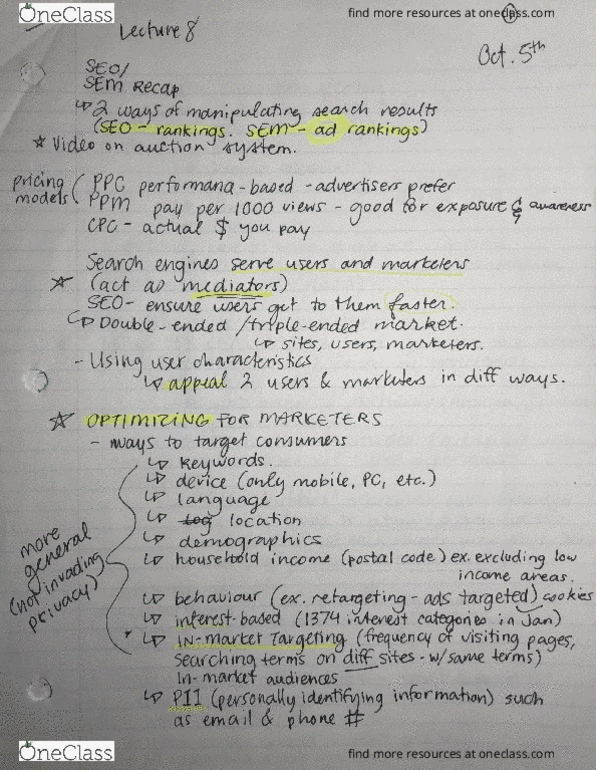 OneClass
find more resources at oneclass.com
Lecture 8
Oct. 5th
SEO/
SEM Recap
↳ 2 ways of manipulating search results
(SEO - rankings. SEM - ad rankings)
★ Video on auction system.
pricing models
PPC performana - based - advertisers prefer
PPM pay per 1000 views - good for exposure & awareness
CPC - actual $ you pay
Search engines serve users and marketers
★ (act as mediators)
SEO - ensure users get to them faster.
↳ Double-ended / triple-ended market.
↳ sites, users, marketers.
- Using user characteristics
↳ appeal 2 users & marketers in diff ways.
★ OPTIMIZING FOR MARKETERS
- ways to target consumers
↳ keywords.
↳ device (only mobile, PC, etc.)
↳ language
↳ location
↳ demographics
↳ household income (postal code) ex. excluding low
income areas.
more general (not invading privacy)
↳ behaviour (ex. retargeting - ads targeted) cookies
↳ interest-based (1374 interest categories in Jan)
↳ IN-MARKET TARGETING (frequency of visiting pages,
searching terms on diff sites - w/same terms)
In-market audiences
↳ PII (personally identifying information) such
as email & phone #
OneClass
find more resources at oneclass.com